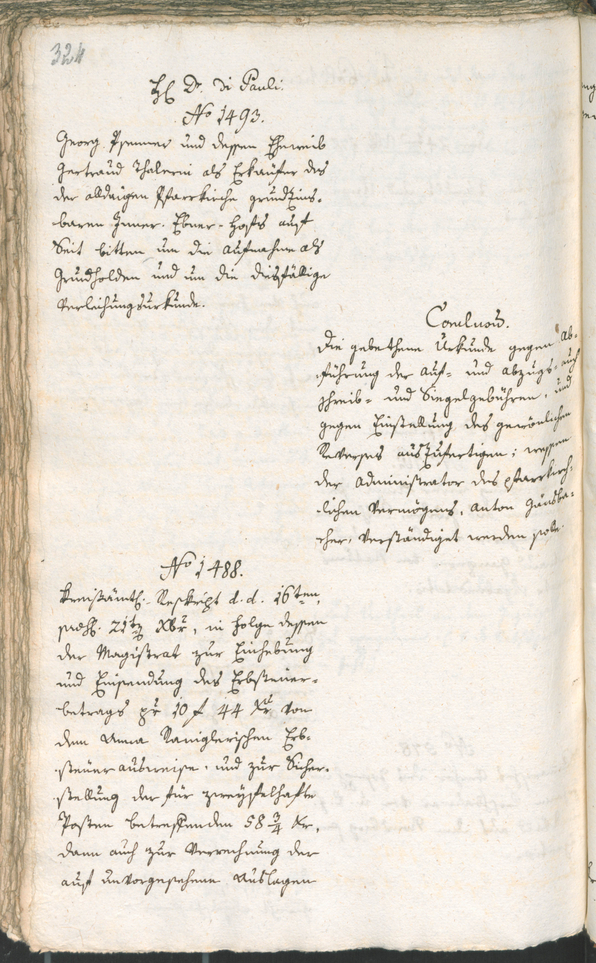 324
H. Dr. di Pauli.
No 1493.
Georg Psenner und dessen Eheweib
Gertraud Thalerin als Erkaufer des
der alldaigen Pfarrkirche grundzins-
baren Inner-Ebner-Hofs auf
Seit bitten um die Aufnahme als
Grundholden und um die diesfällige
Verleihungsurkunde.
Conclusum.
Die gebethene Urkunde gegen Ab-
führung der Auf- und Abzugs- auch
Schreib- und Siegelgebühren, und
gegen Einstellung des gewönlichen
Reverses auszufertigen; wessen
der Administrator des pfarrkirch-
lichen Vermögens, Anton
verständiget werden solle.
No 1488.
Kreisämtl. Reskript d. d. 16ten,
21ten Xbr, in Folge dessen
der Magistrat zur Einhebung
und Einsendung des Erbsteuer-
betrags pr 10 f 44 Xr von
dem Anna Raniglerischen Erb-
steuerausweise, und zur Sicher-
stellung der für zweifelhafte
Posten betreffenden 58 3/4 Xr,
dann auch zur Verrechnung der
auf unvorgesehene Auslagen